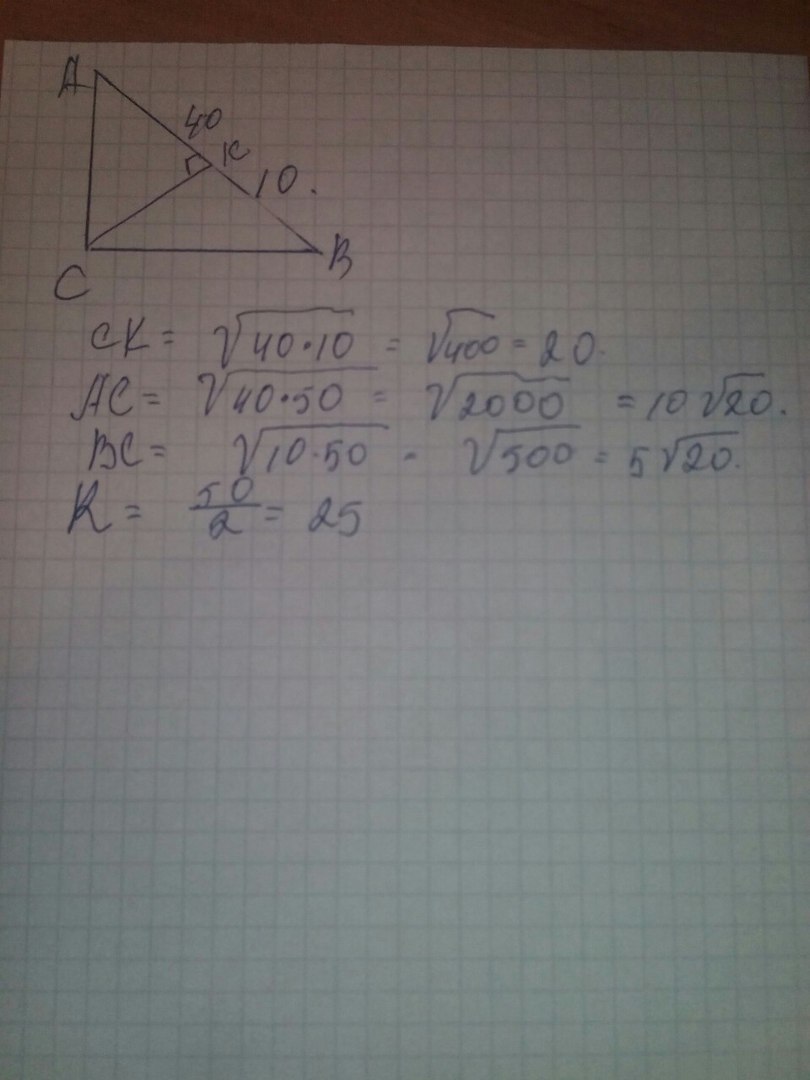 A
40
K
10.
B
C
CK = √40·10 = √400 = 20.
AC = √40·50 = √2000 = 10√20.
BC = √10·50 - √500 = 5√20.
R = 50/2 = 25